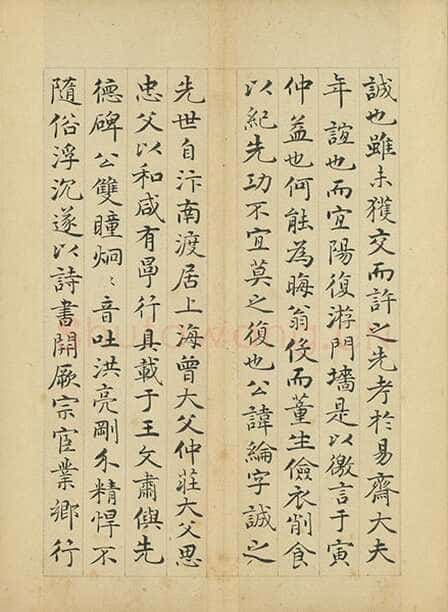 誠也雖未獲交而許之先考於易齋大夫
年誼也而宜陽復游門墻是以徵言于寅
仲益也何能為晦翁役而董生儉衣削食
以紀先功不宜莫之復也公諱綸字誠之
先世自汴南渡居上海曾大父仲莊大父思
忠父以和咸有學行具載于王文肅與先
德碑公雙瞳炯〻音吐洪亮剛介精悍不
隨俗浮沉遂以詩書開厥宗宦業鄉行